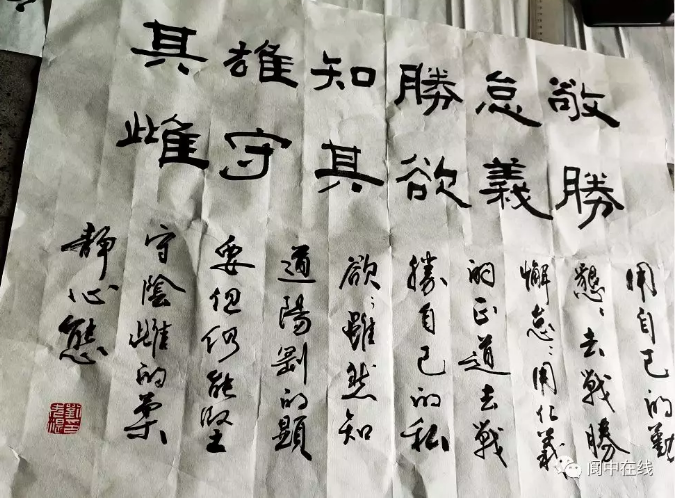 敬勝
怠義
勝欲
知其
雄守
其雌
用自己的勤
懇、去戰勝
懈怠、用仁義
的正道去戰
勝自己的私
欲、雖然知
道陽剛的顯
要但仍能堅
守陰雌的柔
靜心態
阆中在线